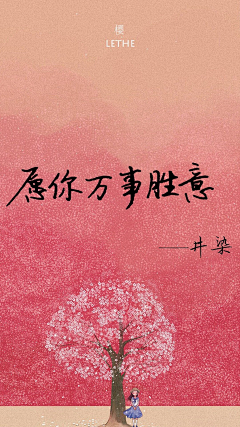 LETHE
愿你万事胜意
——井染